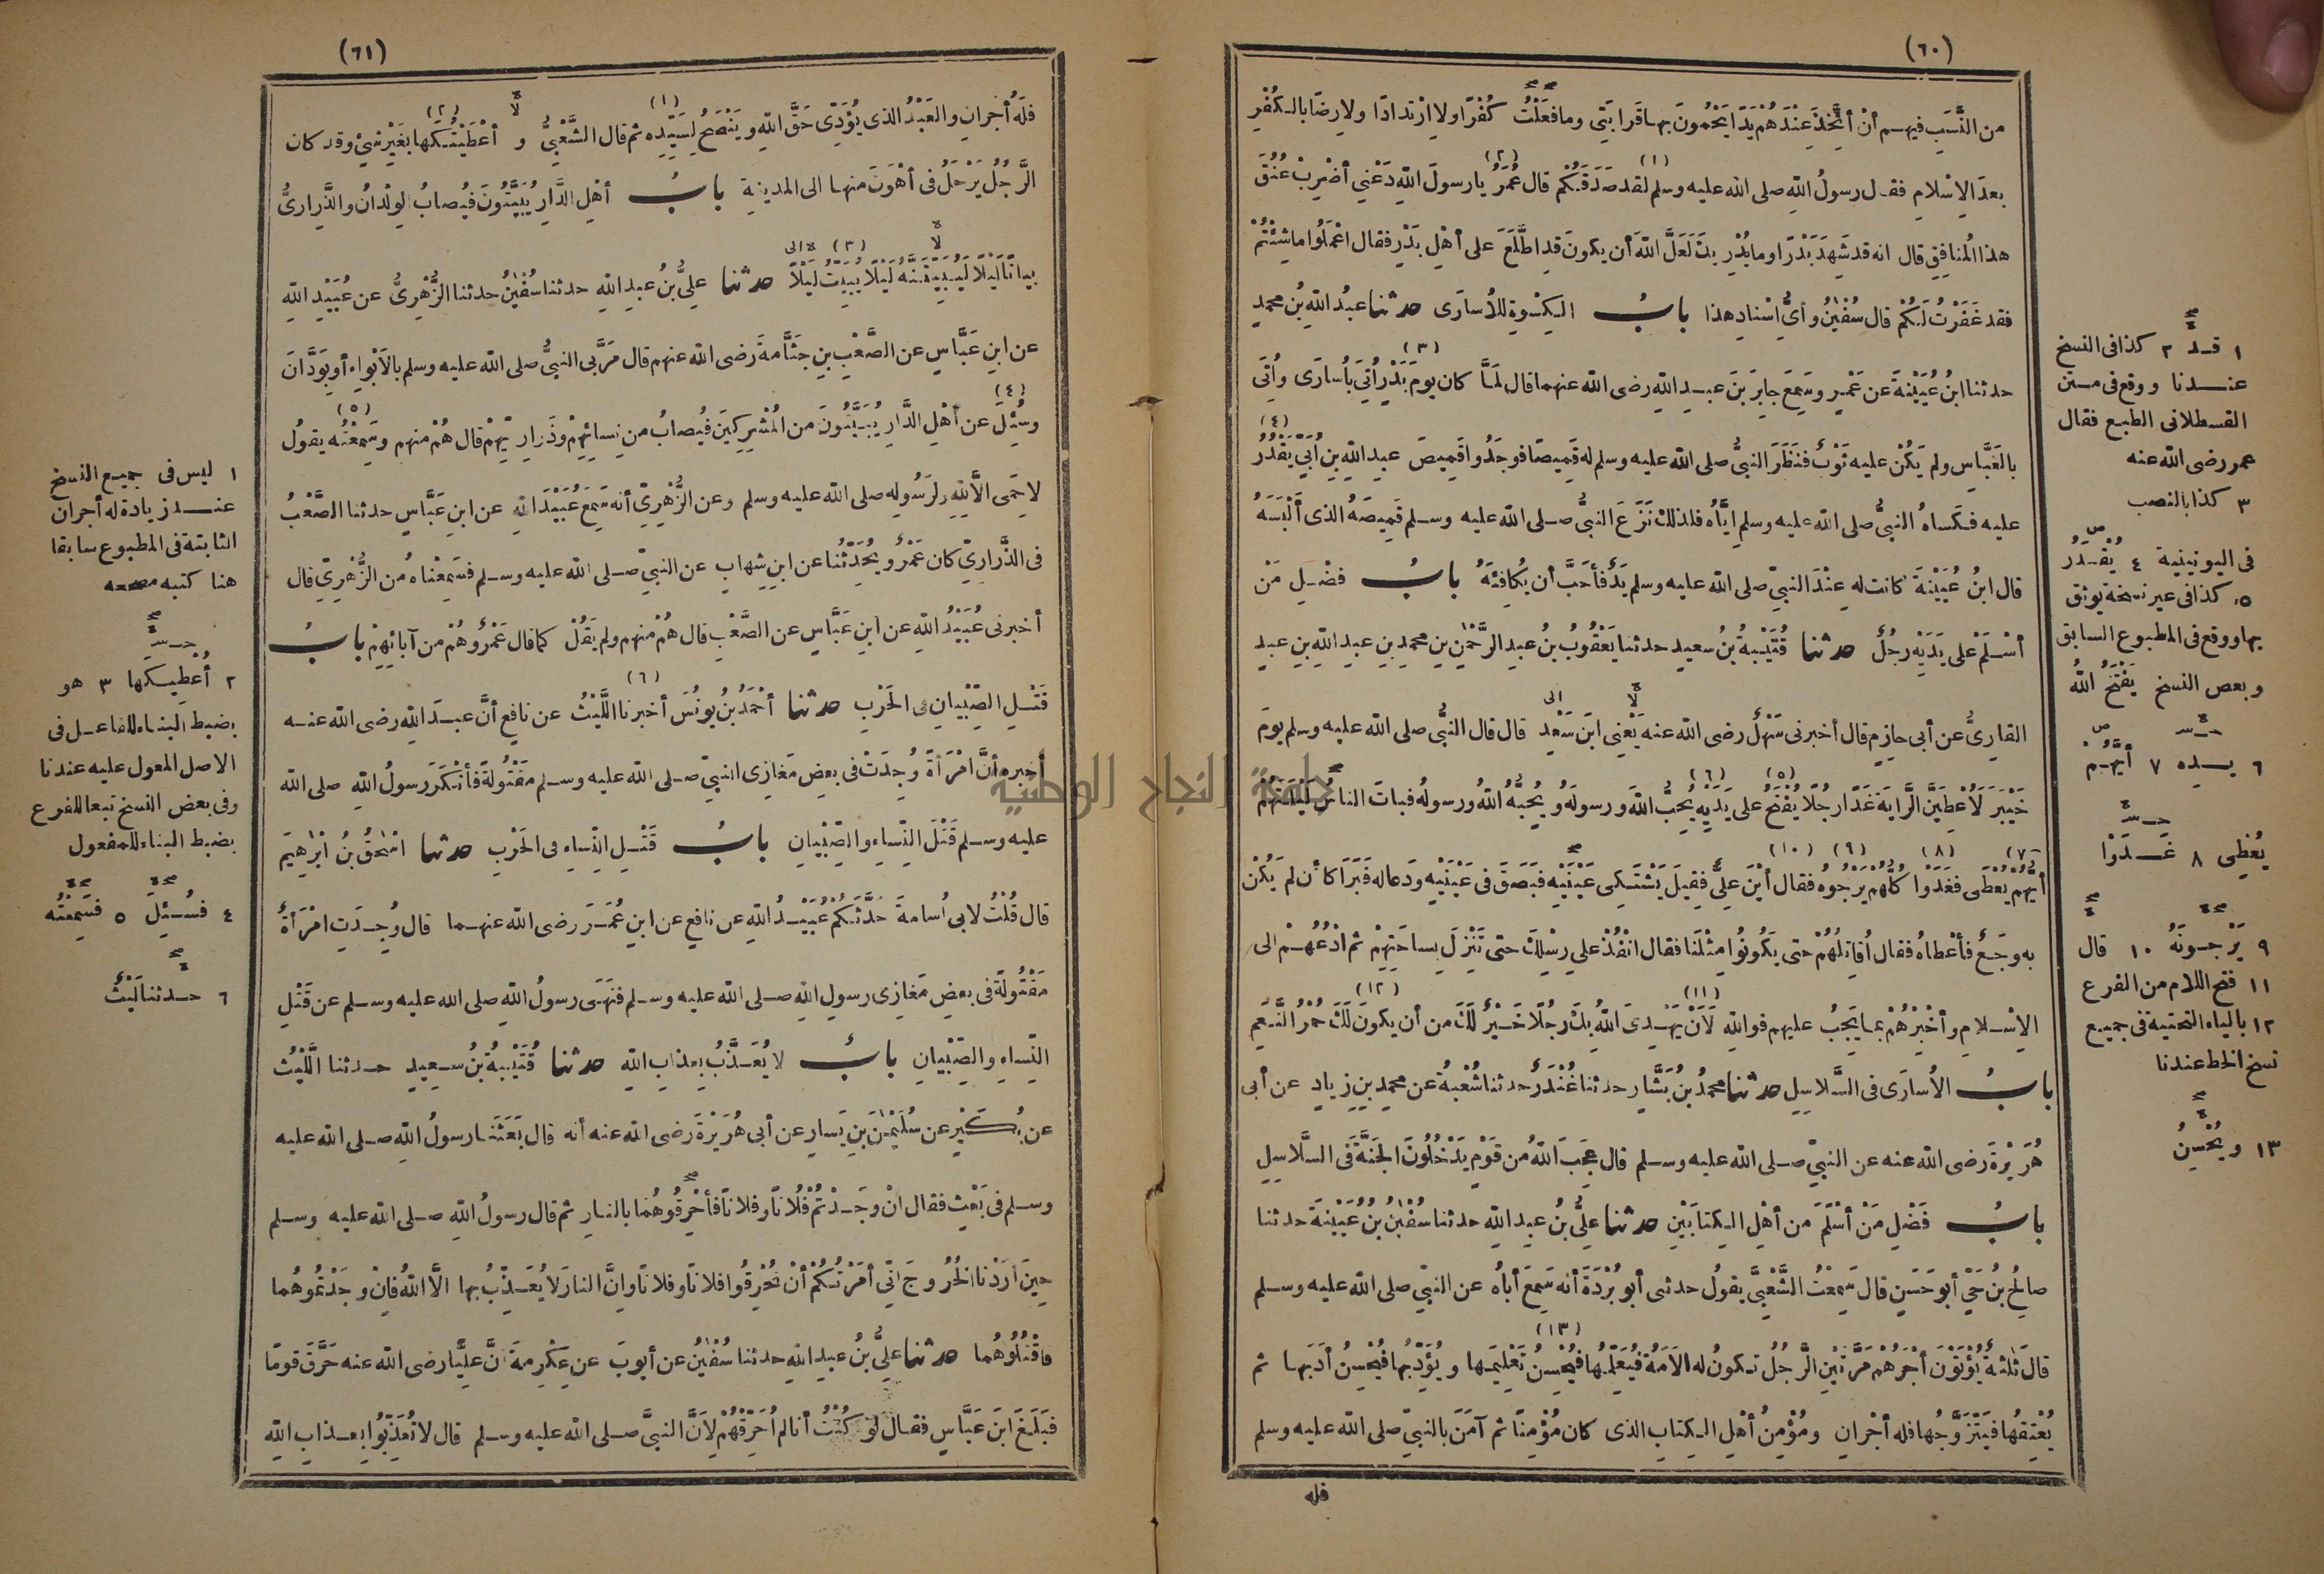 (٦٠)
من النَّسَبِ فيهم أنْ أتَّخِذَ عِنْدَهُمْ يَدًا يَحْمُونَ بها قَرابَتِى وما فَعَلْتُ كُفْرًا ولا ارْتِدادًا ولا رِضًا بالكُفْرِ
بعدَ الاِسْلامِ فقال رسولُ اللهِ صلى الله عليه وسلم لقد صَدَقَكُمْ (١) قال عُمَرُ (٢) يا رسولَ اللهِ دَعْنِى أضْرِبْ عُنُقَ
هذا المُنافِقِ قال انه قد شَهِدَ بَدْرًا وما يُدْرِيكَ لَعَلَّ اللهَ أن يكونَ قدِ اطَّلَعَ على أهْلِ بَدْرٍ فقال اعْمَلُوا ما شِئْتُمْ
فقد غَفَرْتُ لَكُمْ قال سُفْيٰنُ وأىُّ اسْنادٍ هذا باب الكِسْوةِ للأُسارَى حدثنا عبدُ اللهِ بنُ محمدٍ
حدثنا ابنُ عُيَيْنةَ عن عَمْرٍو سَمِعَ جابِرَ بنَ عبدِ اللهِ رضى الله عنهما قال لَمَّا كان يومَ (٣) بَدْرٍ أُتِىَ بأُسارَى وأُتِىَ
بالعَبَّاسِ ولم يَكُنْ عليه ثَوْبٌ فنَظَرَ النبىُّ صلى الله عليه وسلم له قَمِيصًا فوَجَدُوا قَمِيصَ عبدِ اللهِ بنِ أُبَىٍّ يَقْدُرُ (٤)
عليه فكَساهُ النبىُّ صلى الله عليه وسلم ايَّاهُ فلذلك نَزَعَ النبىُّ صلى الله عليه وسلم قَمِيصَهُ الذى ألْبَسَهُ
قال ابنُ عُيَيْنةَ كانت له عِنْدَ النبىِّ صلى الله عليه وسلم يَدٌ فأحَبَّ أن يُكافِئَهُ بابُ فضْلِ مَنْ
أسْلَمَ على يَدَيْهِ رجُلٌ حدثنا قُتَيْبةُ بنُ سعيدٍ حدثنا يَعْقُوبُ بنُ عبدِ الرَّحْمٰنِ بنِ محمدِ بنِ عبدِ اللهِ بنِ عبدٍ
القارِىُّ عن أبى حازِمٍ قال أخبرنى سَهْلٌ رضى الله عنه يَعْنِى ابنَ سَعْدٍ قال قال النبىُّ صلى الله عليه وسلم يومَ
خَيْبَرَ لَأُعْطِيَنَّ الرَّايةَ غَدًا رجُلًا يُفْتَحُ (٥) على يَدَيْهِ (٦) يُحِبُّ اللهَ ورسولَهُ ويُحِبُّهُ اللهُ ورسولُهُ فباتَ الناسُ لَيْلَتَهُمْ
أيُّهُمْ (٧) يُعْطَى فغَدَوْا (٨) كُلُّهُمْ يَرْجُوهُ (٩) فقال (١٠) أيْنَ عَلِىٌّ فقِيلَ يَشْتَكِى عَيْنَيْهِ فبَصَقَ فى عَيْنَيْهِ ودَعا له فبَرَأ كأن لم يَكُنْ
به وجَعٌ فأعْطاهُ فقال أُقاتِلُهُمْ حتى يَكُونُوا مِثْلَنا فقال انْفُذْ على رِسْلِكَ حتى تَنْزِلَ بِساحَتِهِمْ ثم ادْعُهُمْ الى
الاِسْلامِ وأخْبِرْهُمْ بما يَجِبُ عليهم فواللهِ لَأَنْ (١١) يَهْدِىَ اللهُ بكَ رجُلًا خَيْرٌ لَكَ من أن يكونَ (١٢) لَكَ حُمْرُ النَّعَمِ
بابُ الأُسارَى فى السَّلاسِلِ حدثنا محمدُ بنُ بَشَّارٍ حدثنا غُنْدَرٌ حدثنا شُعْبةُ عن محمدِ بنِ زِيادٍ عن أبى
هُرَيْرةَ رضى الله عنه عن النبىِّ صلى الله عليه وسلم قال عَجِبَ اللهُ من قَوْمٍ يَدْخُلُونَ الجَنَّةَ فى السَّلاسِلِ
بابُ فَضْلِ مَنْ أسْلَمَ من أهْلِ الكِتابَيْنِ حدثنا علِىُّ بنُ عبدِ اللهِ حدثنا سُفْيٰنُ بنُ عُيَيْنةَ حدثنا
صالِحُ بنُ حَىٍّ أبو حَسَنٍ قال سَمِعْتُ الشَّعْبِىَّ يقولُ حدثنى أبو بُرْدَةَ أنه سَمِعَ أباهُ عن النبىِّ صلى الله عليه وسلم
قال ثَلٰثةٌ يُؤْتَوْنَ أجْرَهُمْ مَرَّتَيْنِ الرَّجُلُ تكونُ له الأَمَةُ فيُعَلِّمُها فيُحْسِنُ (١٣) تَعْلِيمَها ويُؤَدِّبُها فيُحْسِنُ أدَبَها ثم
يُعْتِقُها فيَتَزَوَّجُها فله أجْرانِ ومُؤْمِنُ أهْلِ الكِتابِ الذى كان مُؤْمِنًا ثم آمَنَ بالنبىِّ صلى الله عليه وسلم
فله
١ قد ٢ كذا فى النسخ
عندنا ووقع فى متن
القسطلانى الطبع فقال
عمر رضى الله عنه
٣ كذا بالنصب
فى اليونينية ٤ يُقْدَرُ
٥ كذا فى غير نسخة يوثق
بها ووقع فى المطبوع السابق
وبعض النسخ يَفْتَحُ اللهُ
٦ يده ٧ أيَّهُمْ
يُعْطِى ٨ غَدَوْا
٩ يَرْجونَهُ ١٠ قال
١١ فتح اللام من الفرع
١٢ بالياء التحتية فى جميع
نسخ الخط عندنا
١٣ ويُحْسِنُ
(٦١)
فلَهُ أجرانِ والعَبْدُ الذى يُؤَدِّى حَقَّ اللهِ ويَنْصَحُ لِسَيِّدِهِ (١) ثم قال الشَّعْبِىُّ وأعْطَيْتُكَها (٢) بغَيْرِ شىْءٍ وقد كان
الرَّجُلُ يَرْحَلُ فى أهْوَنَ منها الى المدينةِ بابُ أهْلِ الدَّارِ يُبَيَّتُونَ فيُصابُ الوِلْدانُ والذَّرارِىُّ
بَياتًا لَيْلًا لَيُبَيِّتَنَّهُ لَيْلًا يُبَيِّتُ (٣) لَيْلًا حدثنا علىُّ بنُ عبدِ اللهِ حدثنا سُفْيٰنُ حدثنا الزُّهْرِىُّ عن عُبَيْدِ اللهِ
عن ابنِ عَبَّاسٍ عن الصَّعْبِ بنِ جَثَّامةَ رضى الله عنهم قال مَرَّ بِى النبىُّ صلى الله عليه وسلم بالأَبْواءِ أو بوَدَّانَ
وسُئِلَ (٤) عن أهْلِ الدَّارِ يُبَيَّتُونَ من المُشْرِكِينَ فيُصابُ من نِسائِهِمْ وذَرارِيِّهِمْ قال هُمْ منهم وسَمِعْتُهُ (٥) يقولُ
لا حِمَى الَّا لِلهِ ولِرَسُولِهِ صلى الله عليه وسلم وعن الزُّهْرِىِّ أنه سَمِعَ عُبَيْدَ اللهِ عن ابنِ عَبَّاسٍ حدثنا الصَّعْبُ
فى الذَّرارِىِّ كان عَمْرٌو يُحَدِّثُنا عن ابنِ شِهابٍ عن النبىِّ صلى الله عليه وسلم فسَمِعْناهُ من الزُّهْرِىِّ قال
أخبرنى عُبَيْدُ اللهِ عن ابنِ عَبَّاسٍ عن الصَّعْبِ قال هُمْ منهم ولم يَقُلْ كما قال عَمْرٌو هُمْ من آبائِهِمْ بابُ
قَتْلِ الصِّبْيانِ فى الحَرْبِ حدثنا أحْمَدُ بنُ يُونُسَ أخبرنا (٦) اللَّيْثُ عن نافِعٍ أنَّ عبدَ اللهِ رضى الله عنه
أخبره أنَّ امْرَأةً وُجِدَتْ فى بعضِ مَغازِى النبىِّ صلى الله عليه وسلم مَقْتُولةً فأنْكَرَ رسولُ اللهِ صلى الله
عليه وسلم قَتْلَ النِّساءِ والصِّبْيانِ بابُ قَتْلِ النِّساءِ فى الحَرْبِ حدثنا اسْحٰقُ بنُ ابْرٰهِيمَ
قال قُلْتُ لأبى أُسامةَ حَدَّثَكُمْ عُبَيْدُ اللهِ عن نافِعٍ عن ابنِ عُمَرَ رضى الله عنهما قال وُجِدَتِ امْرَأةٌ
مَقْتُولةً فى بعضِ مَغازِى رسولِ اللهِ صلى الله عليه وسلم فنَهَى رسولُ اللهِ صلى الله عليه وسلم عن قَتْلِ
النِّساءِ والصِّبْيانِ بابٌ لا يُعَذَّبُ بعذابِ اللهِ حدثنا قُتَيْبةُ بنُ سعِيدٍ حدثنا اللَّيْثُ
عن بُكَيْرٍ عن سُلَيْمٰنَ بنِ يَسارٍ عن أبى هُرَيْرةَ رضى الله عنه أنه قال بَعَثَنا رسولُ اللهِ صلى الله عليه
وسلم فى بَعْثٍ فقال انْ وجَدْتُمْ فُلانًا وفلانًا فأحْرِقُوهُما بالنارِ ثم قال رسولُ اللهِ صلى الله عليه وسلم
حِينَ أرَدْنا الخُرُوجَ انِّى أمَرْتُكُمْ أنْ تُحْرِقُوا فلانًا وفلانًا وانَّ النارَ لا يُعَذِّبُ بها الَّا اللهُ فانْ وجَدْتُمُوهُما
فاقْتُلُوهُما حدثنا علىُّ بنُ عبدِ اللهِ حدثنا سُفْيٰنُ عن أيوبَ عن عِكْرِمةَ أنَّ عليًّا رضى الله عنه حَرَّقَ قومًا
فبَلَغَ ابنَ عَبَّاسٍ فقال لو كُنْتُ أنا لم أُحَرِّقْهُمْ لأَنَّ النبىَّ صلى الله عليه وسلم قال لا تُعَذِّبُوا بعذابِ اللهِ
١ ليس فى جميع النسخ
عندنا زيادة له أجران
الثابتة فى المطبوع سابقا
هنا كتبه مصححه
٢ أُعْطِيكَها ٣ هو
بضبط البناء للفاعل فى
الاصل المعول عليه عندنا
وفى بعض النسخ تبعا للفرع
بضبط البناء للمفعول
٤ فسُئِلَ ٥ فسَمِعْتُه
٦ حدثنا لَيْثٌ
جامعة النجاح الوطنية